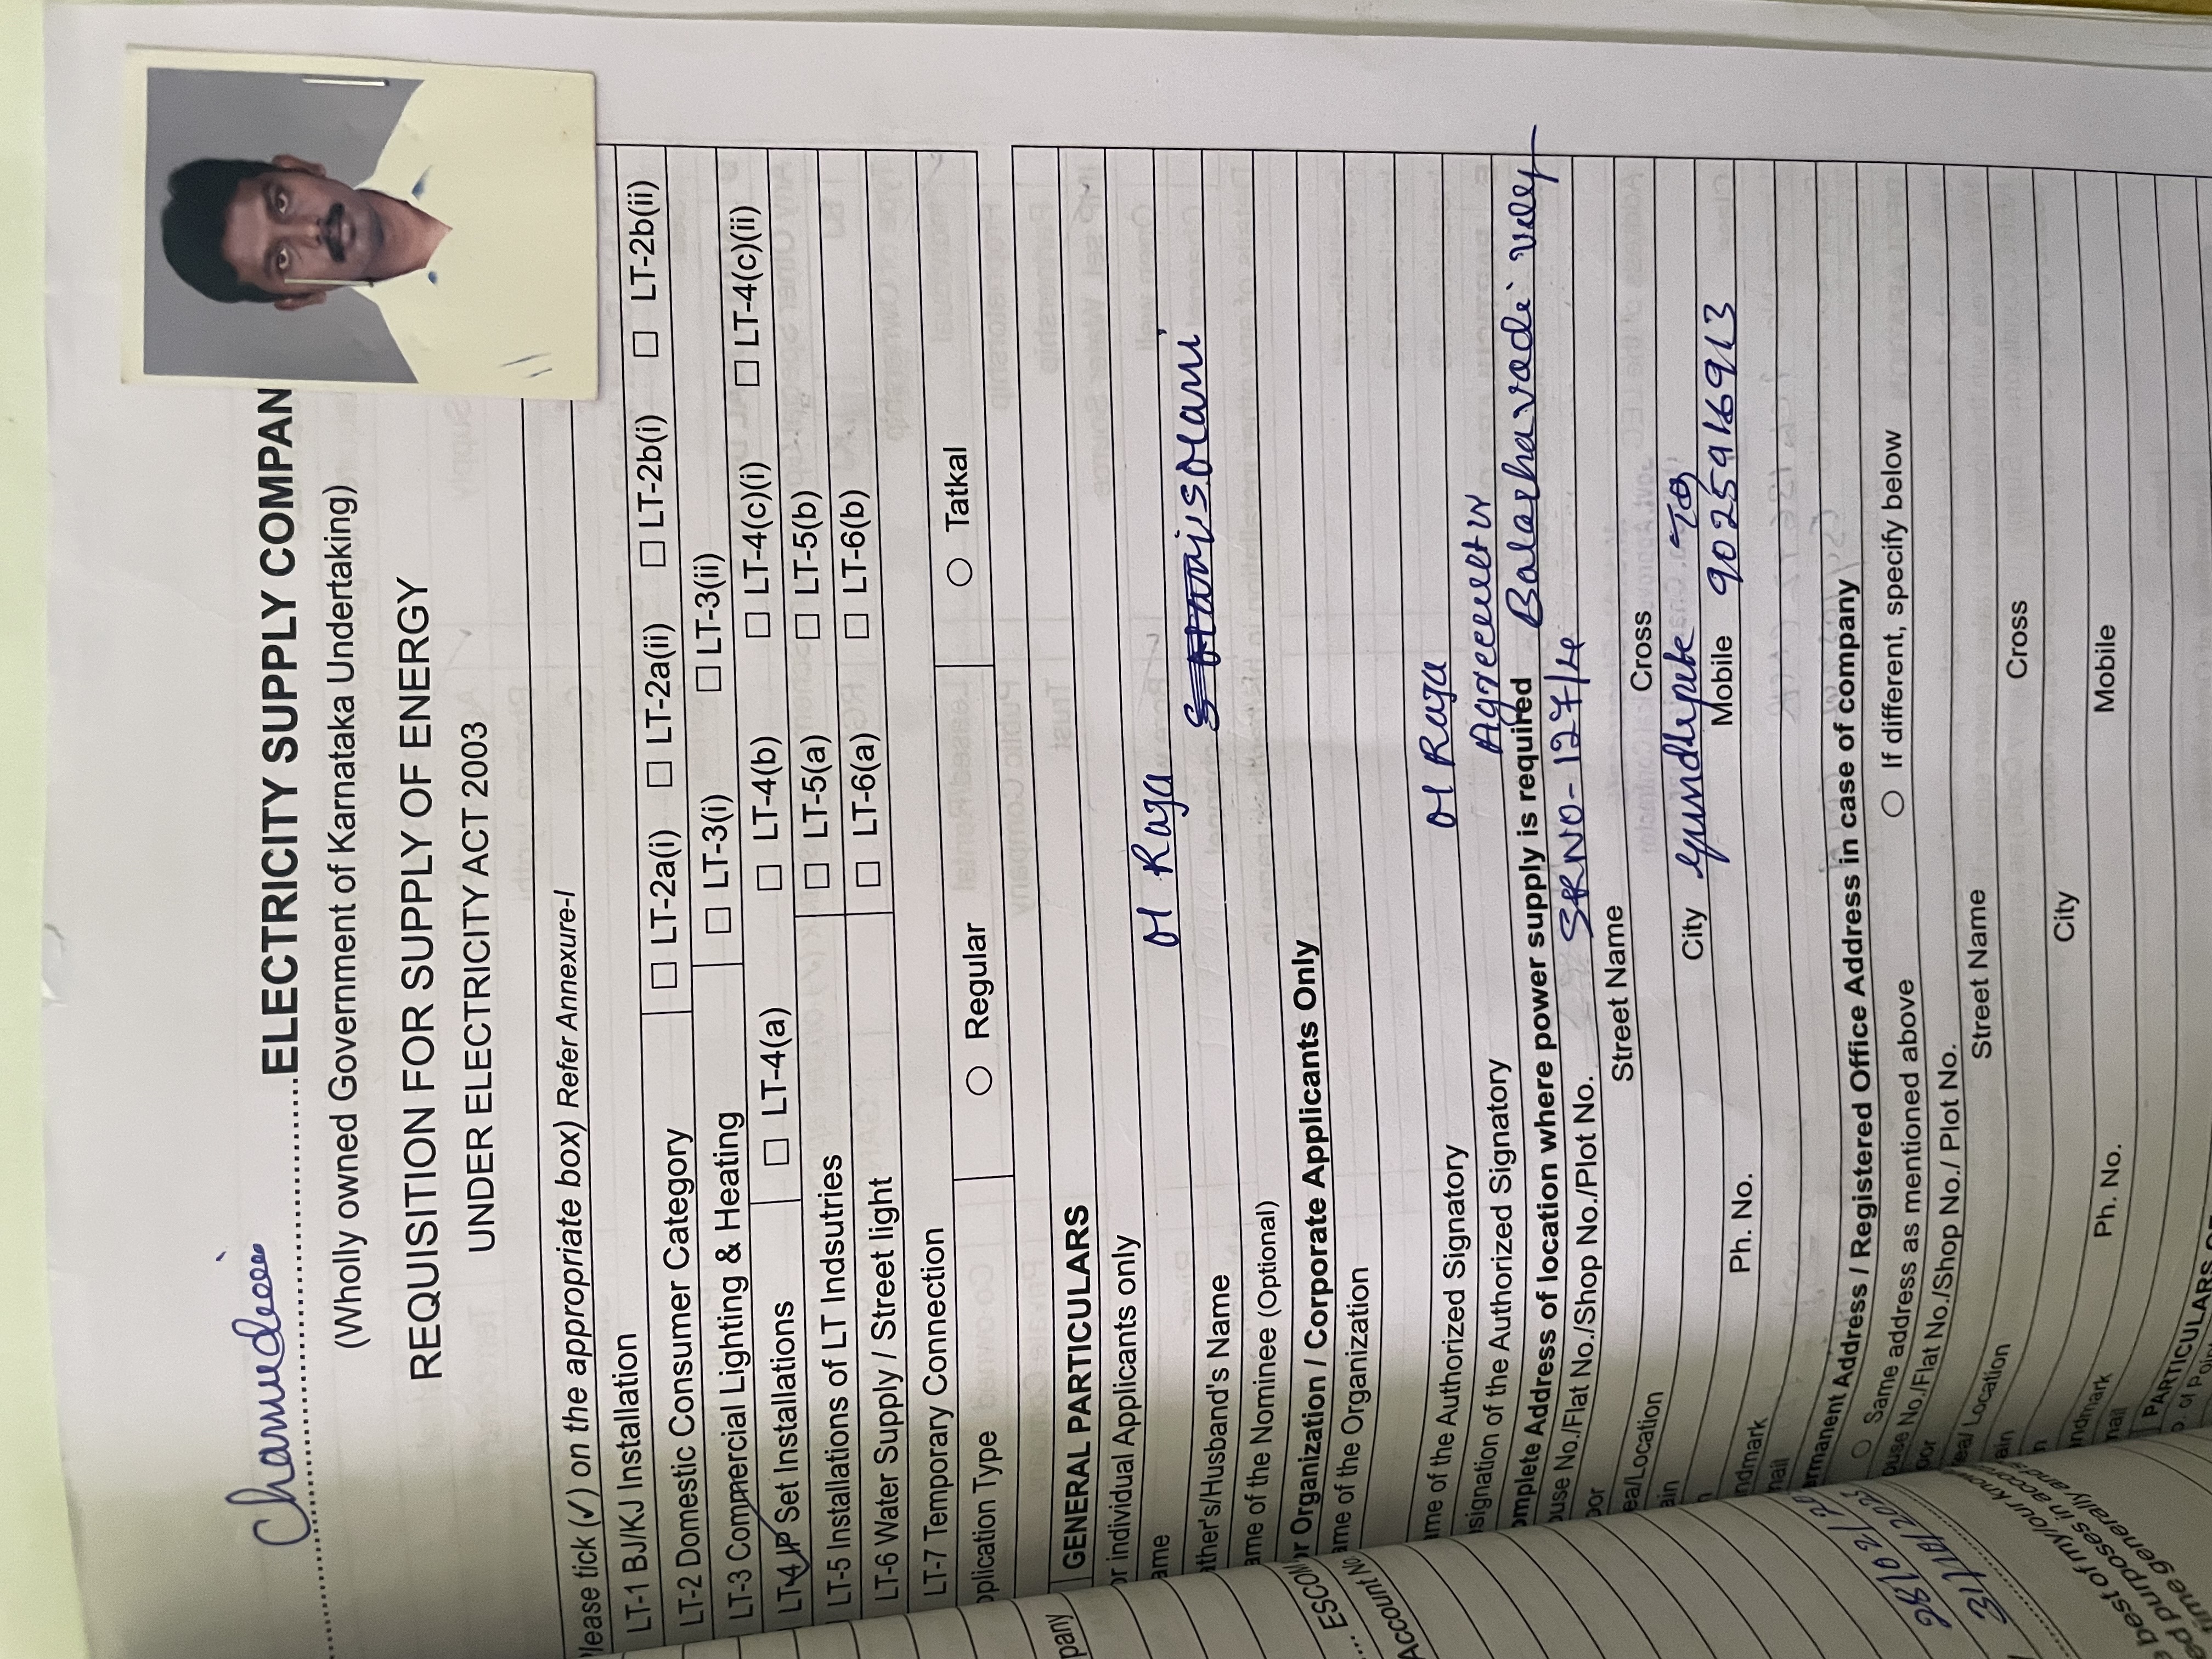 Chamudeii ELECTRICITY SUPPLY COMPAN
(Wholly owned Government of Karnataka Undertaking)
REQUISITION FOR SUPPLY OF ENERGY
UNDER ELECTRICITY ACT 2003
lease tick (✓) on the appropriate box) Refer Annexure-I
LT-1 BJ/KJ Installation
LT-2 Domestic Consumer Category ☐ LT-2a(i) ☐ LT-2a(ii) ☐ LT-2b(i) ☐ LT-2b(ii)
LT-3 Commercial Lighting & Heating ☐ LT-3(i) ☐ LT-3(ii)
LT-4 IP Set Installations ☐ LT-4(a) ☐ LT-4(b) ☐ LT-4(c)(i) ☐ LT-4(c)(ii)
LT-5 Installations of LT Indsutries ☐ LT-5(a) ☐ LT-5(b)
LT-6 Water Supply / Street light ☐ LT-6(a) ☐ LT-6(b)
LT-7 Temporary Connection
plication Type ○ Regular ○ Tatkal
GENERAL PARTICULARS
or individual Applicants only
ame Raja
ather's/Husband's Name
ame of the Nominee (Optional)
or Organization / Corporate Applicants Only
ame of the Organization
me of the Authorized Signatory Raja
signation of the Authorized Signatory
omplete Address of location where power supply is required
ouse No./Flat No./Shop No./Plot No. SRNO-127/4
oor Street Name
ea/Location Cross
ain City
n Ph. No. Mobile 9025916913
ndmark
mail
ermanent Address / Registered Office Address in case of company
○ Same address as mentioned above ○ If different, specify below
ouse No./Flat No./Shop No./ Plot No.
oor Street Name
ea/ Location Cross
ain City
n Ph. No. Mobile
ndmark
mail
PARTICULARS
pany
.... ESCOM
Account No
28/02/20
31/10/2023
best of my/our know
ed purposes in acco
me generally and s